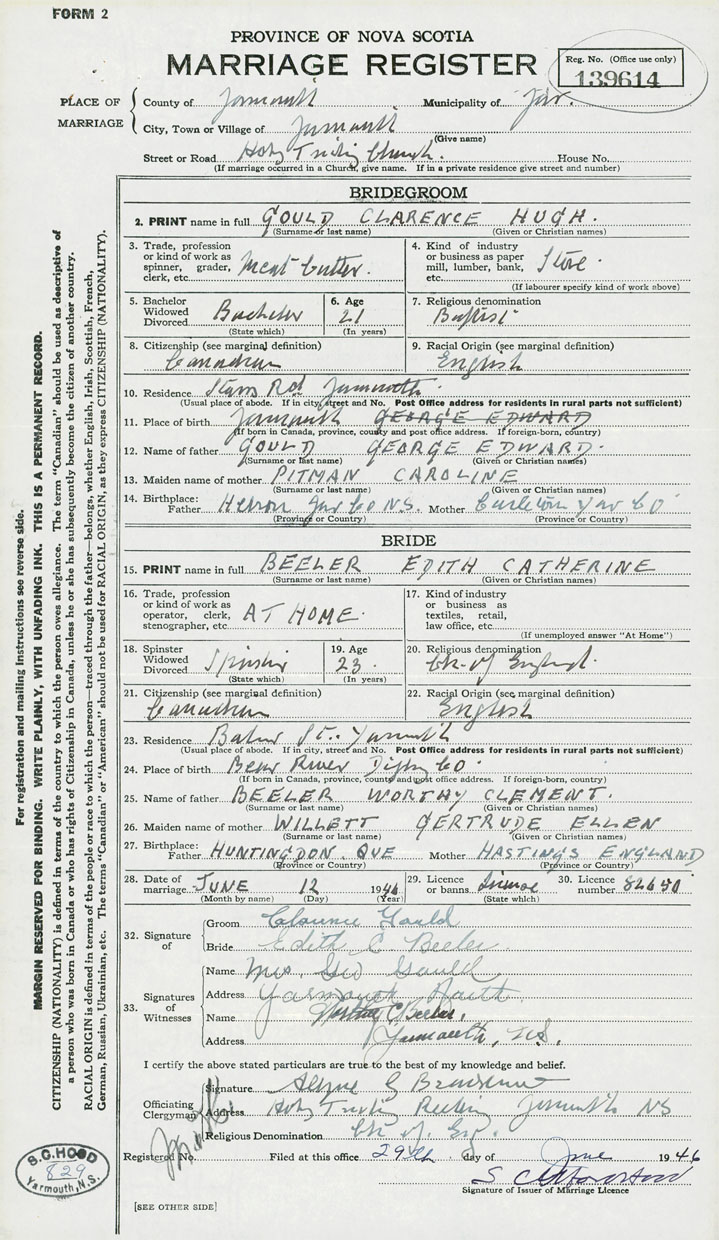 FORM 2
PROVINCE OF NOVA SCOTIA
MARRIAGE REGISTER
Reg. No. (Office use only)
139614
PLACE OF MARRIAGE
County of Yarmouth Municipality of Yar.
City, Town or Village of Yarmouth
(Give name)
Street or Road Holy Trinity Church. House No.
(If marriage occurred in a Church, give name. If in a private residence give street and number)
BRIDEGROOM
2. PRINT name in full GOULD CLARENCE HUGH.
(Surname or last name) (Given or Christian names)
3. Trade, profession or kind of work as spinner, grader, clerk, etc. Meat Cutter.
4. Kind of industry or business as paper mill, lumber, bank, etc. Store.
(If labourer specify kind of work above)
5. Bachelor Widowed Divorced Bachelor
(State which)
6. Age 21
(In years)
7. Religious denomination Baptist
8. Citizenship (see marginal definition) Canadian
9. Racial Origin (see marginal definition) English
10. Residence Starrs Rd Yarmouth.
(Usual place of abode. If in city, street and No. Post Office address for residents in rural parts not sufficient)
11. Place of birth Yarmouth GEORGE EDWARD
(If born in Canada, province, county and post office address. If foreign-born, country)
12. Name of father GOULD GEORGE EDWARD.
(Surname or last name) (Given or Christian names)
13. Maiden name of mother PITMAN CAROLINE
(Surname or last name) (Given or Christian names)
14. Birthplace: Father Hebron Yar Co NS. Mother Carleton Yar Co
(Province or Country) (Province or Country)
BRIDE
15. PRINT name in full BEELER EDITH CATHERINE
(Surname or last name) (Given or Christian names)
16. Trade, profession or kind of work as operator, clerk, stenographer, etc. AT HOME.
17. Kind of industry or business as textiles, retail, law office, etc.
(If unemployed answer "At Home")
18. Spinster Widowed Divorced Spinster
(State which)
19. Age 23.
(In years)
20. Religious denomination Ch. of England.
21. Citizenship (see marginal definition) Canadian
22. Racial Origin (see marginal definition) English
23. Residence St. Yarmouth
(Usual place of abode. If in city, street and No. Post Office address for residents in rural parts not sufficient)
24. Place of birth Bear River Digby Co.
(If born in Canada, province, county and post office address. If foreign-born, country)
25. Name of father BEELER WORTHY CLEMENT.
(Surname or last name) (Given or Christian names)
26. Maiden name of mother WILLETT GERTRUDE ELLEN
(Surname or last name) (Given or Christian names)
27. Birthplace: Father HUNTINGDON. QUE Mother HASTINGS ENGLAND
(Province or Country) (Province or Country)
28. Date of marriage JUNE 12 1946
(Month by name) (Day) (Year)
29. Licence or banns License
(State which)
30. Licence number 82650
32. Signature of
Groom Clarence Gould
Bride Edith C Beeler
33. Signatures of Witnesses
Name Mrs. Geo Gould
Address Yarmouth North.
Name Worthy C Beeler.
Address Yarmouth, N.S.
I certify the above stated particulars are true to the best of my knowledge and belief.
Officiating Clergyman
Signature
Address Holy Trinity Rectory Yarmouth NS
Religious Denomination Ch. of Eng.
Registered No. Filed at this office 29th day of June 1946
Signature of Issuer of Marriage Licence
[SEE OTHER SIDE]
S. C. HOOD
829
Yarmouth, N.S.
For registration and mailing instructions see reverse side.
MARGIN RESERVED FOR BINDING. WRITE PLAINLY, WITH UNFADING INK. THIS IS A PERMANENT RECORD.
CITIZENSHIP (NATIONALITY) is defined in terms of the country to which the person owes allegiance. The term "Canadian" should be used as descriptive of
a person who was born in Canada or who has rights of Citizenship in Canada, unless he or she has subsequently become the citizen of another country.
RACIAL ORIGIN is defined in terms of the people or race to which the person—traced through the father—belongs, whether English, Irish, Scottish, French,
German, Russian, Ukrainian, etc. The terms "Canadian" or "American" should not be used for RACIAL ORIGIN, as they express CITIZENSHIP (NATIONALITY).